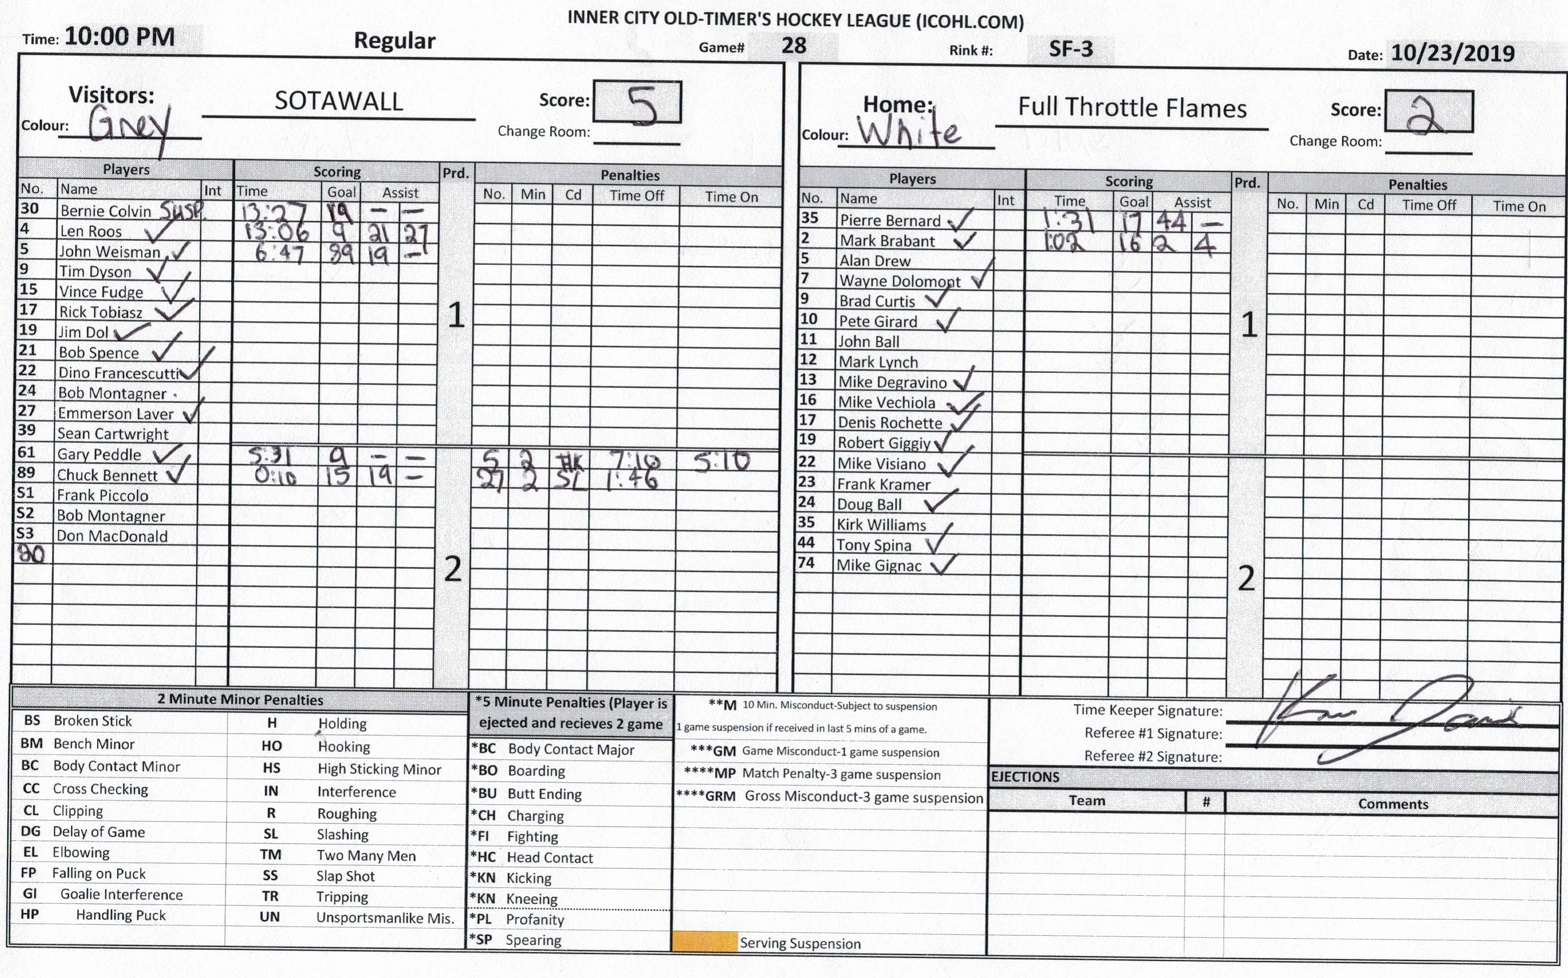 INNER CITY OLD-TIMER'S HOCKEY LEAGUE (ICOHL.COM)
Time: 10:00 PM Regular Game# 28 Rink #: SF-3 Date: 10/23/2019
Visitors: SOTAWALL Score: 5 Home: Full Throttle Flames Score: 2
Colour: Grey Change Room: Colour: White Change Room:
Players Scoring Prd. Penalties
No. Name Int Time Goal Assist No. Min Cd Time Off Time On
30 Bernie Colvin SUSP. 13:27 19 – –
4 Len Roos ✓ 13:06 9 21 27
5 John Weisman ✓ 6:47 89 19 –
9 Tim Dyson ✓
15 Vince Fudge ✓
17 Rick Tobiasz ✓ 1
19 Jim Dol ✓
21 Bob Spence ✓
22 Dino Francescutti ✓
24 Bob Montagner
27 Emmerson Laver ✓
39 Sean Cartwright
61 Gary Peddle ✓ 5:31 9 – – 5 2 HK 7:10 5:10
89 Chuck Bennett ✓ 0:10 15 19 – 27 2 SL 1:46
S1 Frank Piccolo
S2 Bob Montagner
S3 Don MacDonald
2
Players Scoring Prd. Penalties
No. Name Int Time Goal Assist No. Min Cd Time Off Time On
35 Pierre Bernard ✓ 1:31 17 44 –
2 Mark Brabant ✓ 1:02 16 2 4
5 Alan Drew
7 Wayne Dolomont ✓
9 Brad Curtis ✓
10 Pete Girard ✓ 1
11 John Ball
12 Mark Lynch
13 Mike Degravino ✓
16 Mike Vechiola ✓
17 Denis Rochette ✓
19 Robert Giggiy ✓
22 Mike Visiano ✓
23 Frank Kramer
24 Doug Ball ✓
35 Kirk Williams
44 Tony Spina ✓
74 Mike Gignac ✓
2
2 Minute Minor Penalties
BS Broken Stick H Holding
BM Bench Minor HO Hooking
BC Body Contact Minor HS High Sticking Minor
CC Cross Checking IN Interference
CL Clipping R Roughing
DG Delay of Game SL Slashing
EL Elbowing TM Two Many Men
FP Falling on Puck SS Slap Shot
GI Goalie Interference TR Tripping
HP Handling Puck UN Unsportsmanlike Mis.
*5 Minute Penalties (Player is
ejected and recieves 2 game
*BC Body Contact Major
*BO Boarding
*BU Butt Ending
*CH Charging
*FI Fighting
*HC Head Contact
*KN Kicking
*KN Kneeing
*PL Profanity
*SP Spearing
**M 10 Min. Misconduct-Subject to suspension
1 game suspension if received in last 5 mins of a game.
***GM Game Misconduct-1 game suspension
****MP Match Penalty-3 game suspension
****GRM Gross Misconduct-3 game suspension
Serving Suspension
Time Keeper Signature:
Referee #1 Signature:
Referee #2 Signature:
EJECTIONS
Team # Comments